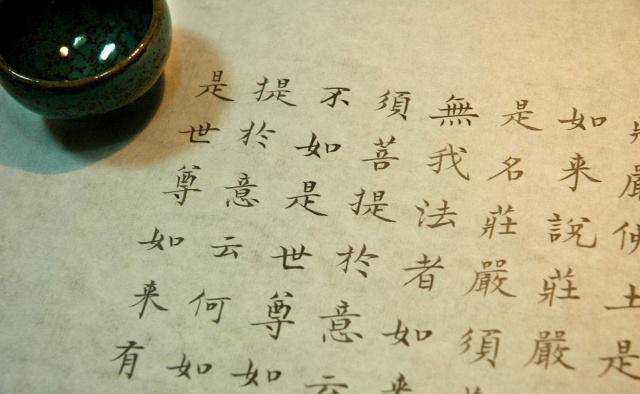 嚴佛土是
如来說莊嚴
是名莊嚴須
無我法者如来
須菩提於意云
不如是世尊如
提於意云何如
是世尊如来有